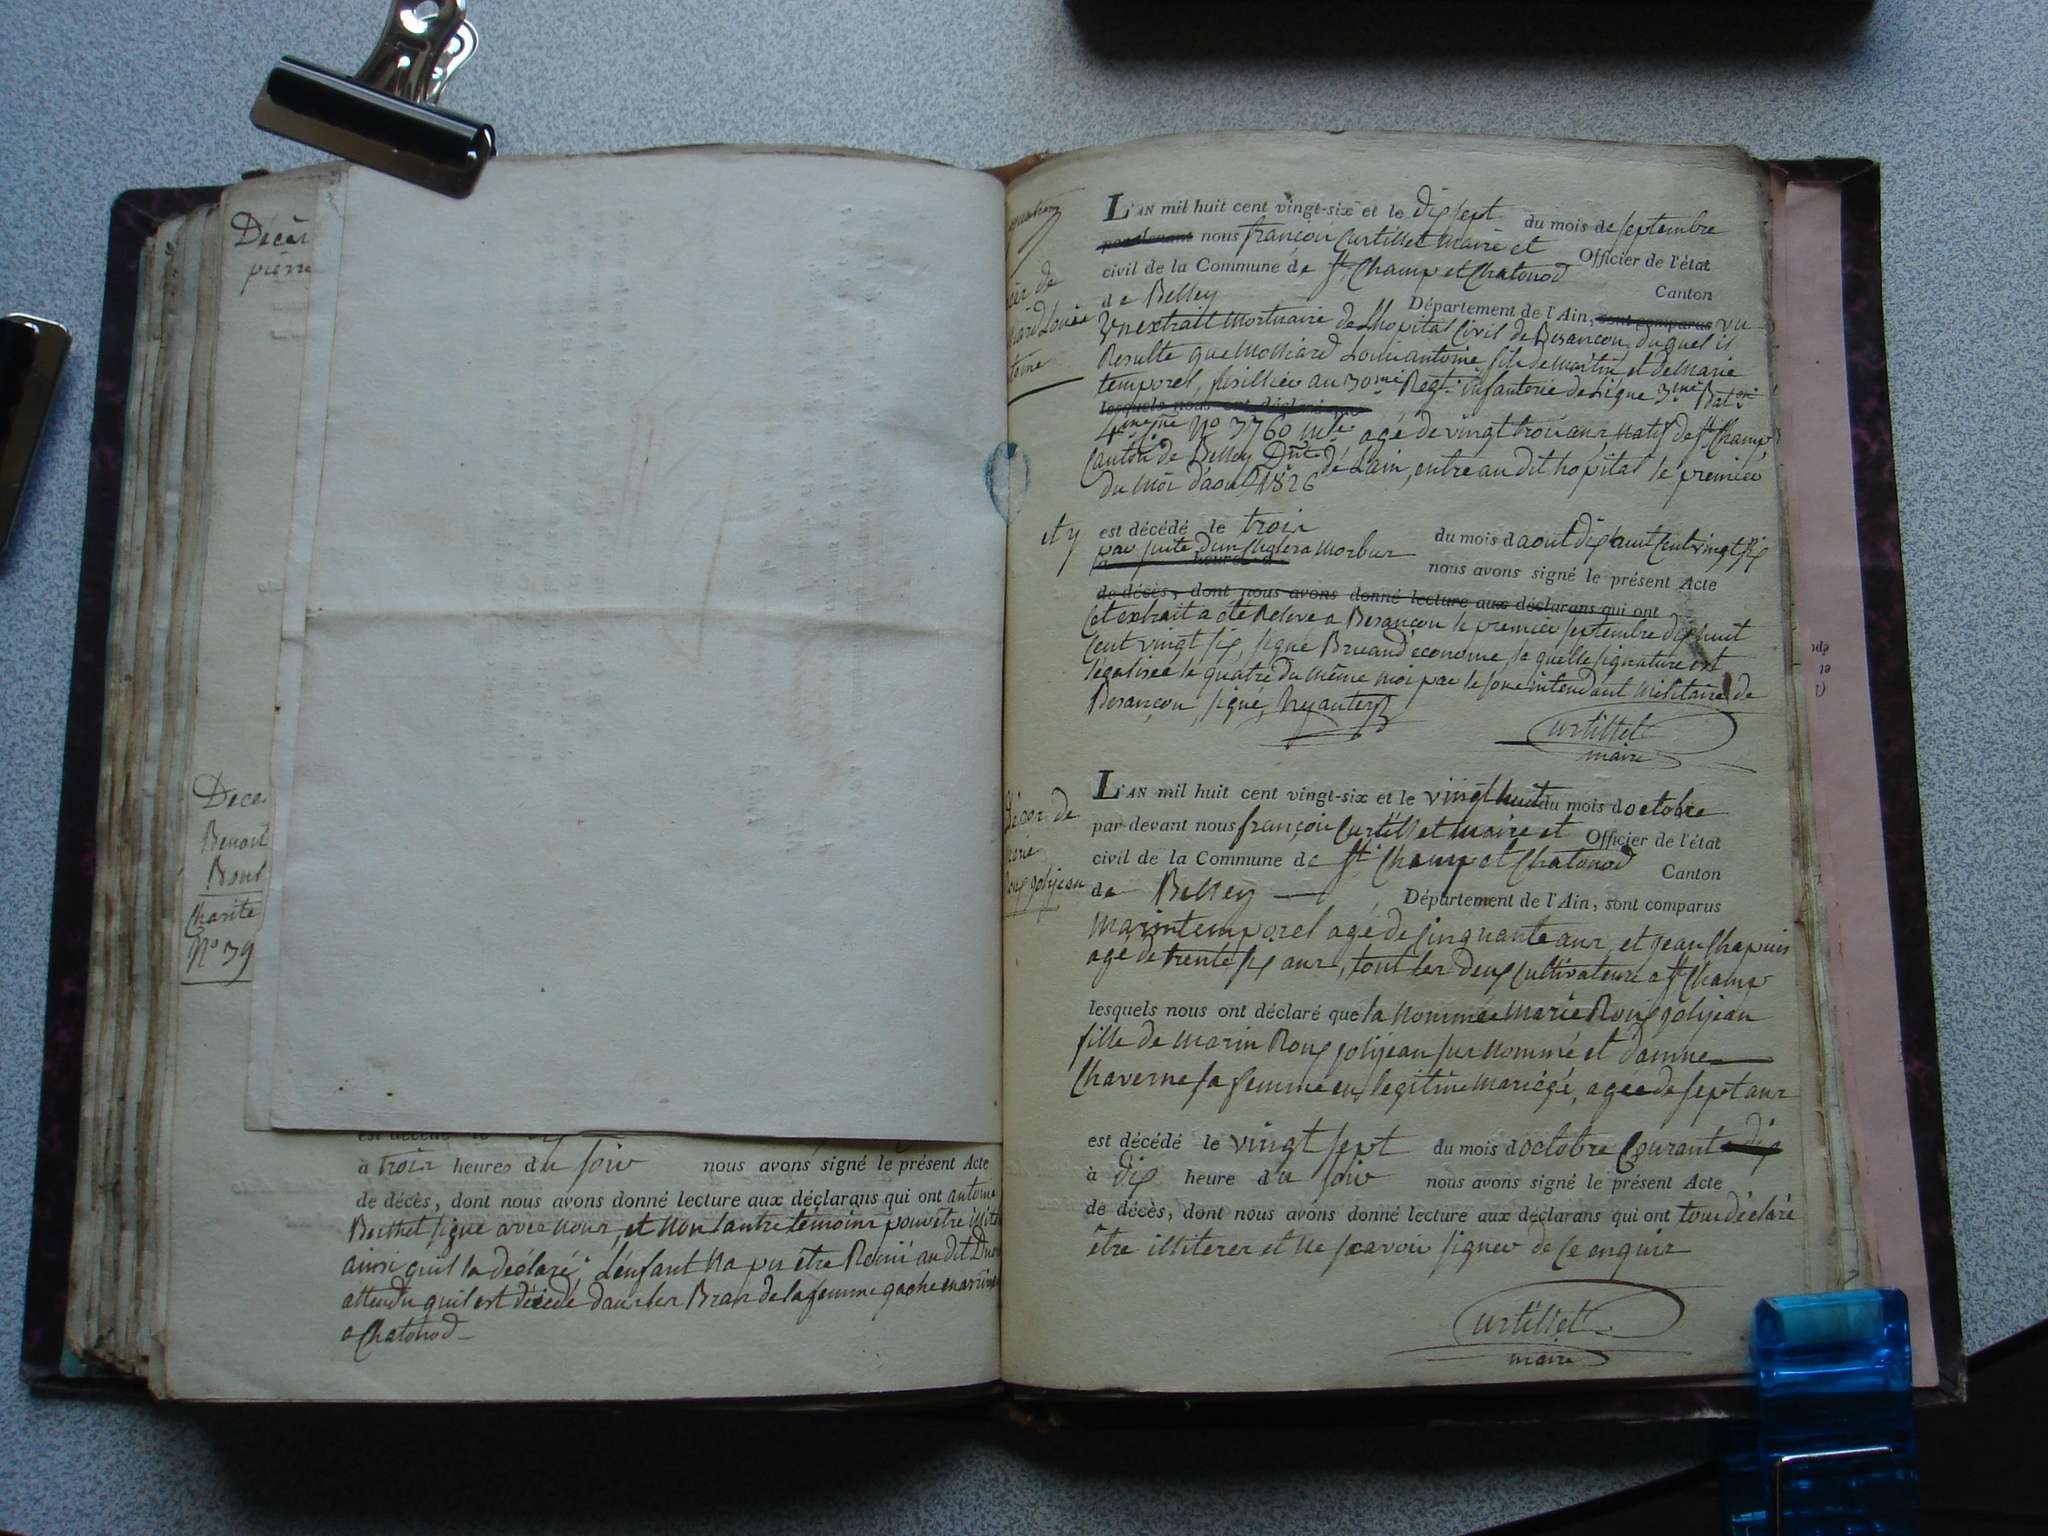 Décès
pierre
Décès
Benoit
Bour
Charité
N° 39
à trois heures du soir nous avons signé le présent Acte
de décès, dont nous avons donné lecture aux déclarans qui ont antoine
Berthet signé avec nous, et non l'autre témoins pour être illite
ainsi quil la déclaré; L'enfant na pu être Réuni au dit
attendu quil est décédé dans les Bras de la femme gache
a Chatonod
L'AN mil huit cent vingt-six et le dix sept du mois de septembre
par-devant nous françois Curtillet Maire et Officier de l'état
civil de la Commune de St Champ et Chatonod Canton
de Belley Département de l'Ain, sont comparus vu
un extrait Mortuaire de L'hopital Civil de Besançon, duquel il
Resulte que Molliard Louis antoine fils de Martin et de Marie
temporel, fusillier au 30me Regt infanterie de Ligne 3me Baton
lesquels nous ont déclaré que
4me Cgne No 3760 mle agé de vingt trois ans natif de St Champ,
Canton de Belley Dmt de Lain, entre au dit hopital le premier
du Mois d'aout 1826
et y est décédé le trois du mois d'aout dix huit Cent vingt six
par suite d'un Cholera Morbus nous avons signé le présent Acte
heures d
de décès, dont nous avons donné lecture aux déclarans qui ont
Cet extrait a été Relevé a Besançon le premier septembre dix huit
Cent vingt six, signé Bruand économe, la quelle signature est
légalisée le quatre du même mois par le sous intendant Militaire de
Besançon signé,
Curtillet
maire
L'AN mil huit cent vingt-six et le vingt huit du mois d'octobre
par-devant nous françois Curtillet Maire et Officier de l'état
civil de la Commune de St Champ et Chatonod Canton
de Belley Département de l'Ain, sont comparus
Marin temporel agé de Cinquante ans, et jean Chapuis
agé de trente six ans, tout les deux Cultivateurs a St Champ
lesquels nous ont déclaré que la nommée Marie Roux jolijean
fille de Marin Roux jolijean sus nommé et d'anne
Chaverne sa femme en légitime Mariage, agée de sept ans
est décédé le vingt sept du mois d'octobre Courant dix
à dix heure du soir nous avons signé le présent Acte
de décès, dont nous avons donné lecture aux déclarans qui ont tous déclaré
être illiterer et ne scavoir signer de Ce enquis
Curtillet
maire